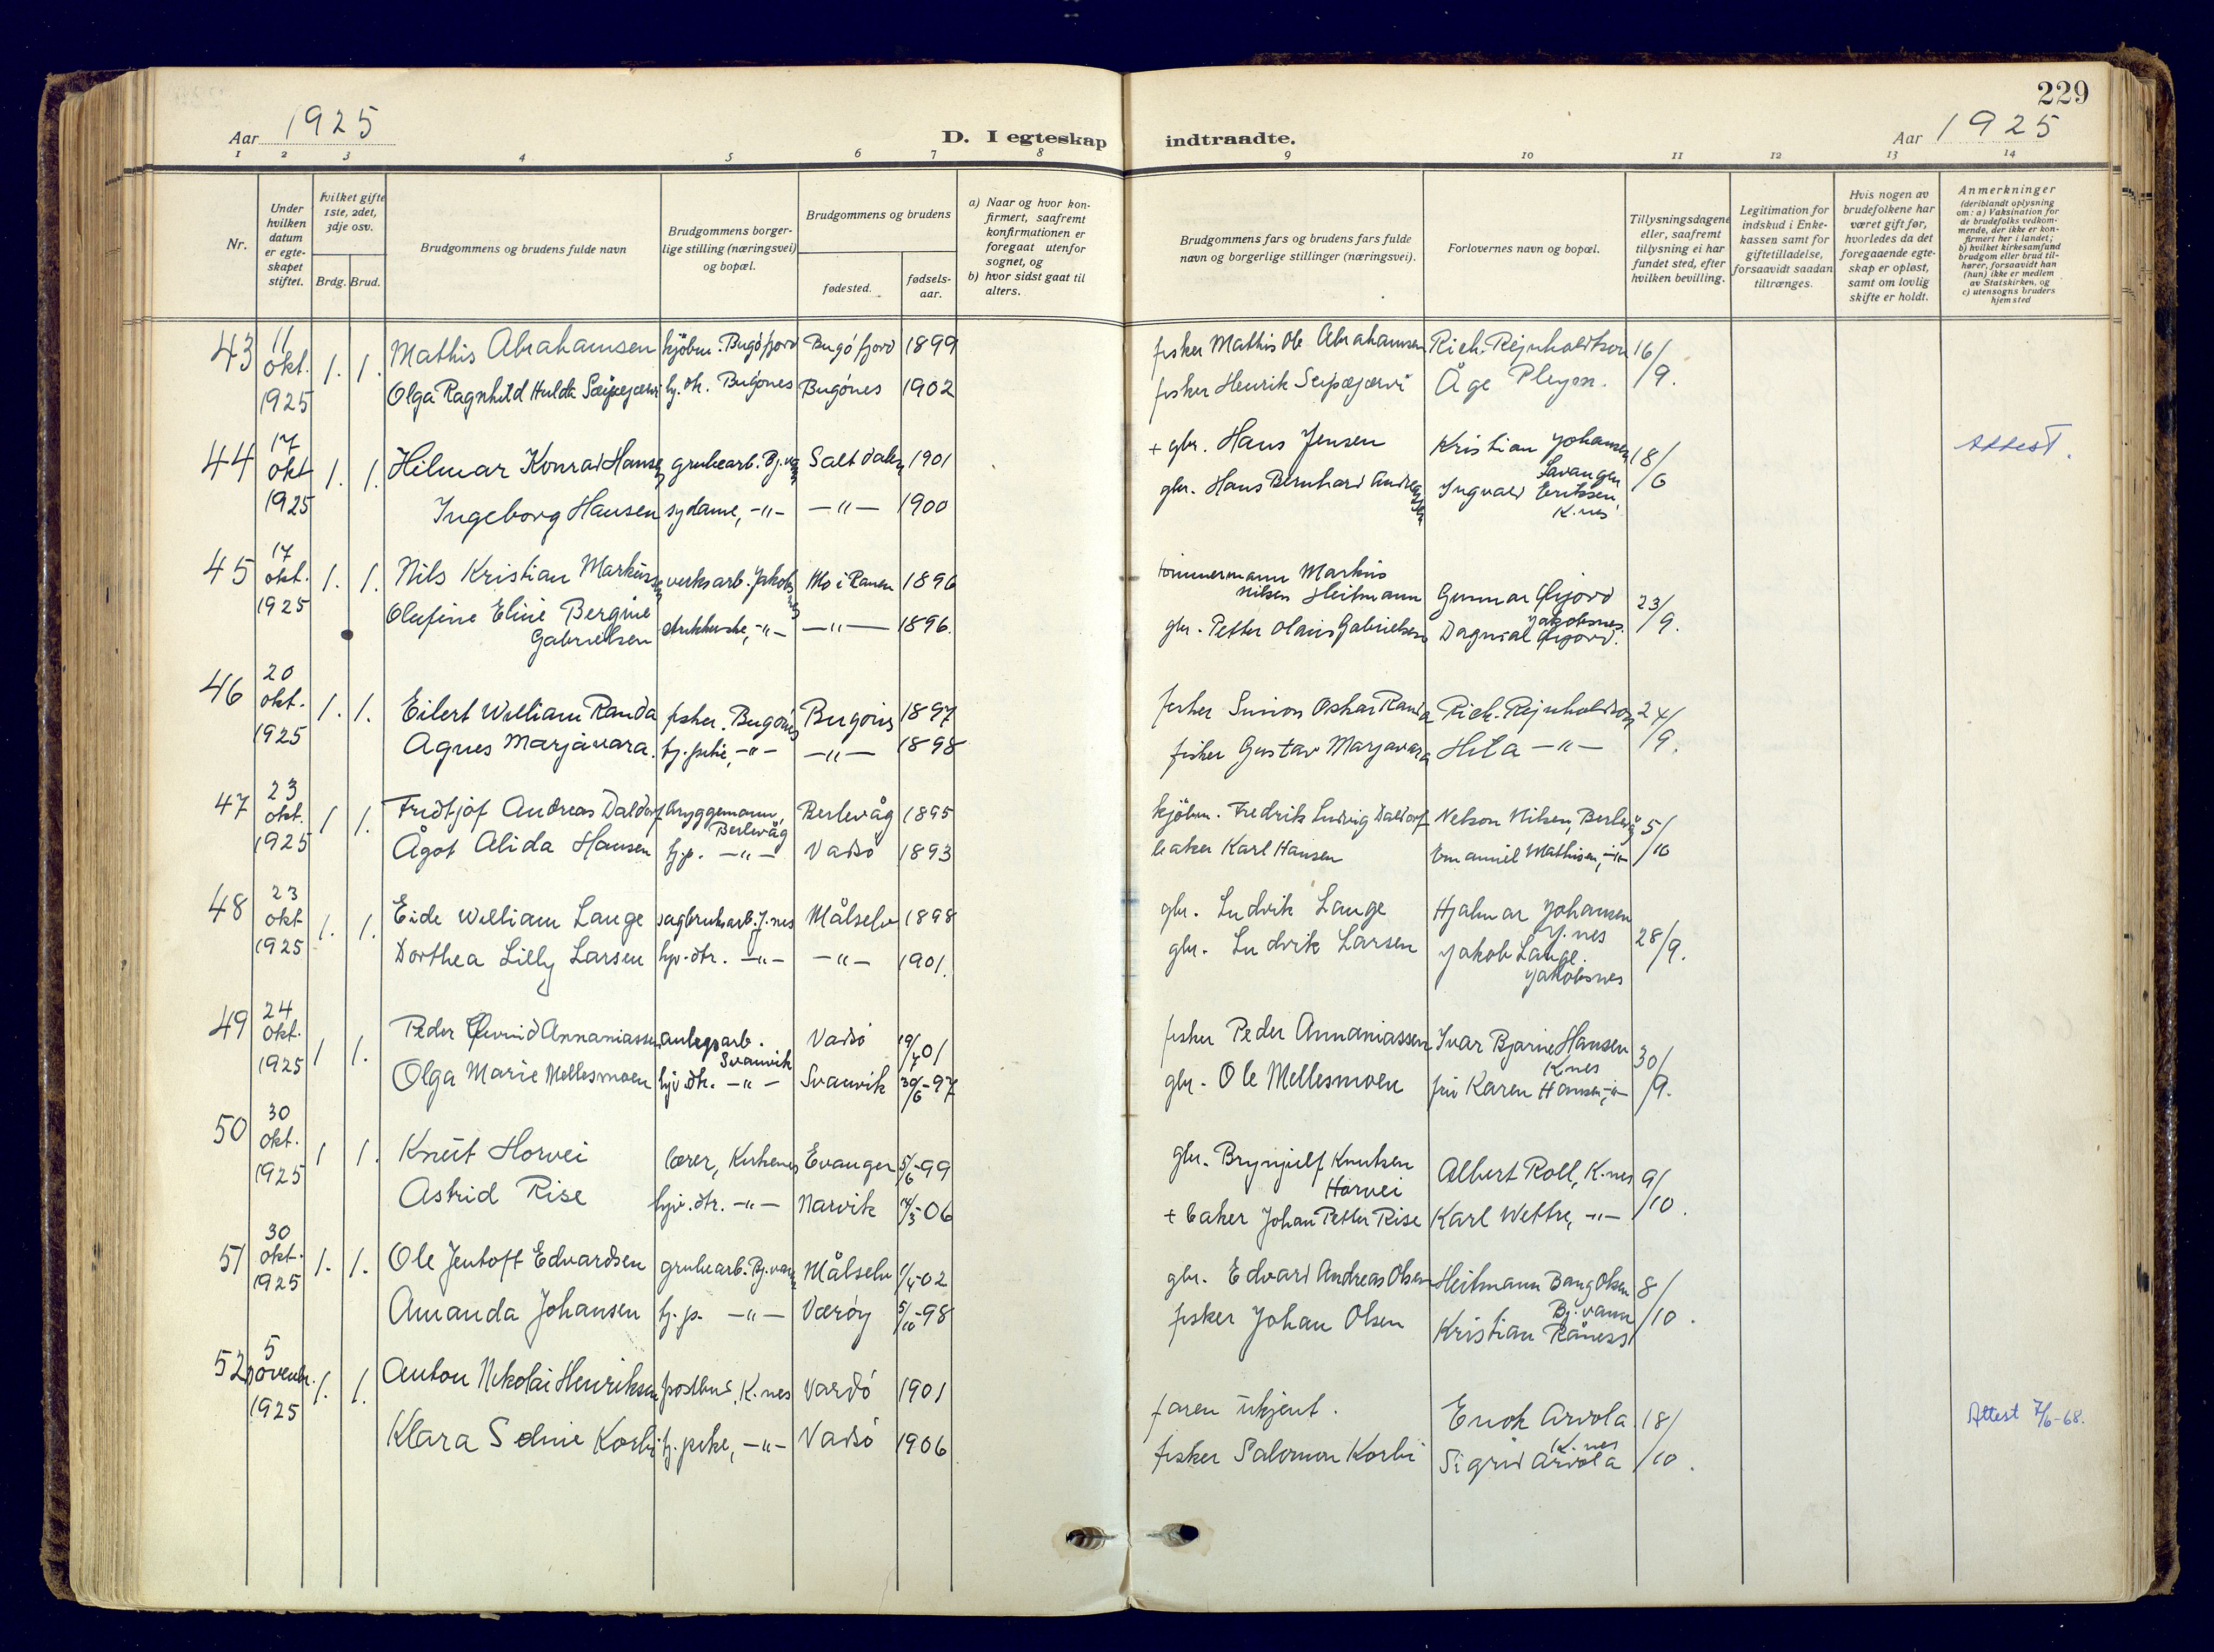 229
Aar 1925
D. I egteskap indtraadte.
Aar 1925
1 2 3 4 5 6 7 8 9 10 11 12 13 14
Nr.
Under hvilken datum er egteskapet stiftet.
hvilket gifte 1ste, 2det, 3dje osv.
Brdg. Brud.
Brudgommens og brudens fulde navn
Brudgommens borgerlige stilling (næringsvei) og bopæl.
Brudgommens og brudens
fødested.
fødselsaar.
a) Naar og hvor konfirmert, saafremt konfirmationen er foregaat utenfor sognet, og
b) hvor sidst gaat til alters.
Brudgommens fars og brudens fars fulde navn og borgerlige stillinger (næringsvei).
Forlovernes navn og bopæl.
Tillysningsdagene eller, saafremt tillysning ei har fundet sted, efter hvilken bevilling.
Legitimation for indskud i Enkekassen samt for giftetilladelse, forsaavidt saadan tiltrænges.
Hvis nogen av brudefolkene har været gift før, hvorledes da det foregaaende egteskap er opløst, samt om lovlig skifte er holdt.
Anmerkninger (deriblandt oplysning om: a) Vaksination for de brudefolks vedkommende, der ikke er konfirmert her i landet; b) hvilket kirkesamfund brudgom eller brud tilhører, forsaavidt han (hun) ikke er medlem av Statskirken, og c) utensogns bruders hjemsted
43 11 okt. 1925 1. 1. Mathis Abrahamsen kjöbm. Bugöfjord Bugöfjord 1899 fisker Mathis Ole Abrahamsen Rich. Rejnholdtson 16/9.
Olga Ragnhild Hulda hj. dtr. Bugönes Bugönes 1902 fisker Henrik Seipæjærvi Åge
44 17 okt 1925 1. 1. Hilmar Konrad Hansen grubearb. Bj.vann Saltdalen 1901 + gbr. Hans Jensen Kristian Johansen Lavangen 18/6 Attest.
Ingeborg Hansen sydame, -"- -"- 1900 gbr. Hans Bernhard Andreassen Ingvald Eriksen K.nes
45 17 okt. 1925 1. 1. Nils Kristian Markussen verksarb. Jakobsnes Mo i Ranen 1896 tömmermann Markus Nilsen Heitmann Gunnar Gjord Jakobsnes 23/9.
Olufine Eline Bergine Gabrielsen -"- -"- 1896. gbr. Petter Olaus Gabrielsen Dagmal
46 20 okt. 1925 1. 1. Eilert William Randa fisker. Bugönes Bugönes 1897 fisker Simon Oskar Randa Rich. Rejnholdtson 24/9.
Agnes Marjavara. hj. peike, -"- -"- 1898 fisker Gustav Marjavara Hilda -"-
47 23 okt. 1925 1 1. Fridtjof Andreas Daldorf bryggemann, Berlevåg Berlevåg 1895 kjöbm. Fredrik Ludvig Daldorf Nelson Nilsen, Berlevåg 5/10
Ågot Alida Hansen hj.p. -"- Vadsö 1893 baker Karl Hansen Emanuel Mathisen, -"-
48 23 okt 1925 1. 1. Eide William Lange sagbruksarb. J.nes Målselv 1898 gbr. Ludvik Lange Hjalmar Johansen J.nes 28/9.
Dorthea Lilly Larsen hjv. dtr. -"- -"- 1901. gbr. Ludvik Larsen Jakob Lange. Jakobsnes
49 24 okt. 1925 1 1. Peder Øivind Annaniassen anlegsarb. Svanvik Vadsö 19/7 01 fisker Peder Annaniassen Ivar Bjarne Hansen K.nes 30/9.
Olga Marie Mellesmoen hjv dtr. -"- Svanvik 30/6-97 gbr. Ole Mellesmoen fru Karen Hansen, -"-
50 30 okt. 1925 1 1. Knut Horvei lærer, Kirkenes Evanger 5/6-99 gbr. Brynjulf Knutsen Horvei Albert Roll, K.nes 9/10.
Astrid Rise hjv. dtr. -"- Narvik 14/3-06 + baker Johan Petter Rise Karl Wettre, -"-
51 30 okt. 1925 1. 1. Ole Jentoft Edvardsen grubearb. Bj.vann Målselv 1/4-02 gbr. Edvard Andreas Olsen Heitmann Bang Olsen Bj.vann 8/10.
Amanda Johansen hj.p. -"- Værøy 5/10-98 fisker Johan Olsen Kristian Råness
52 5 novembr. 1925 1. 1. Anton Nikolai Henriksen postbud, K.nes Vardö 1901 faren ukjent. Enok Arvola K.nes 18/10. Attest 7/6-68.
Klara Seline Korbi hj. peike, -"- Vadsö 1906 fisker Salomon Korbi Sigrid Arvola